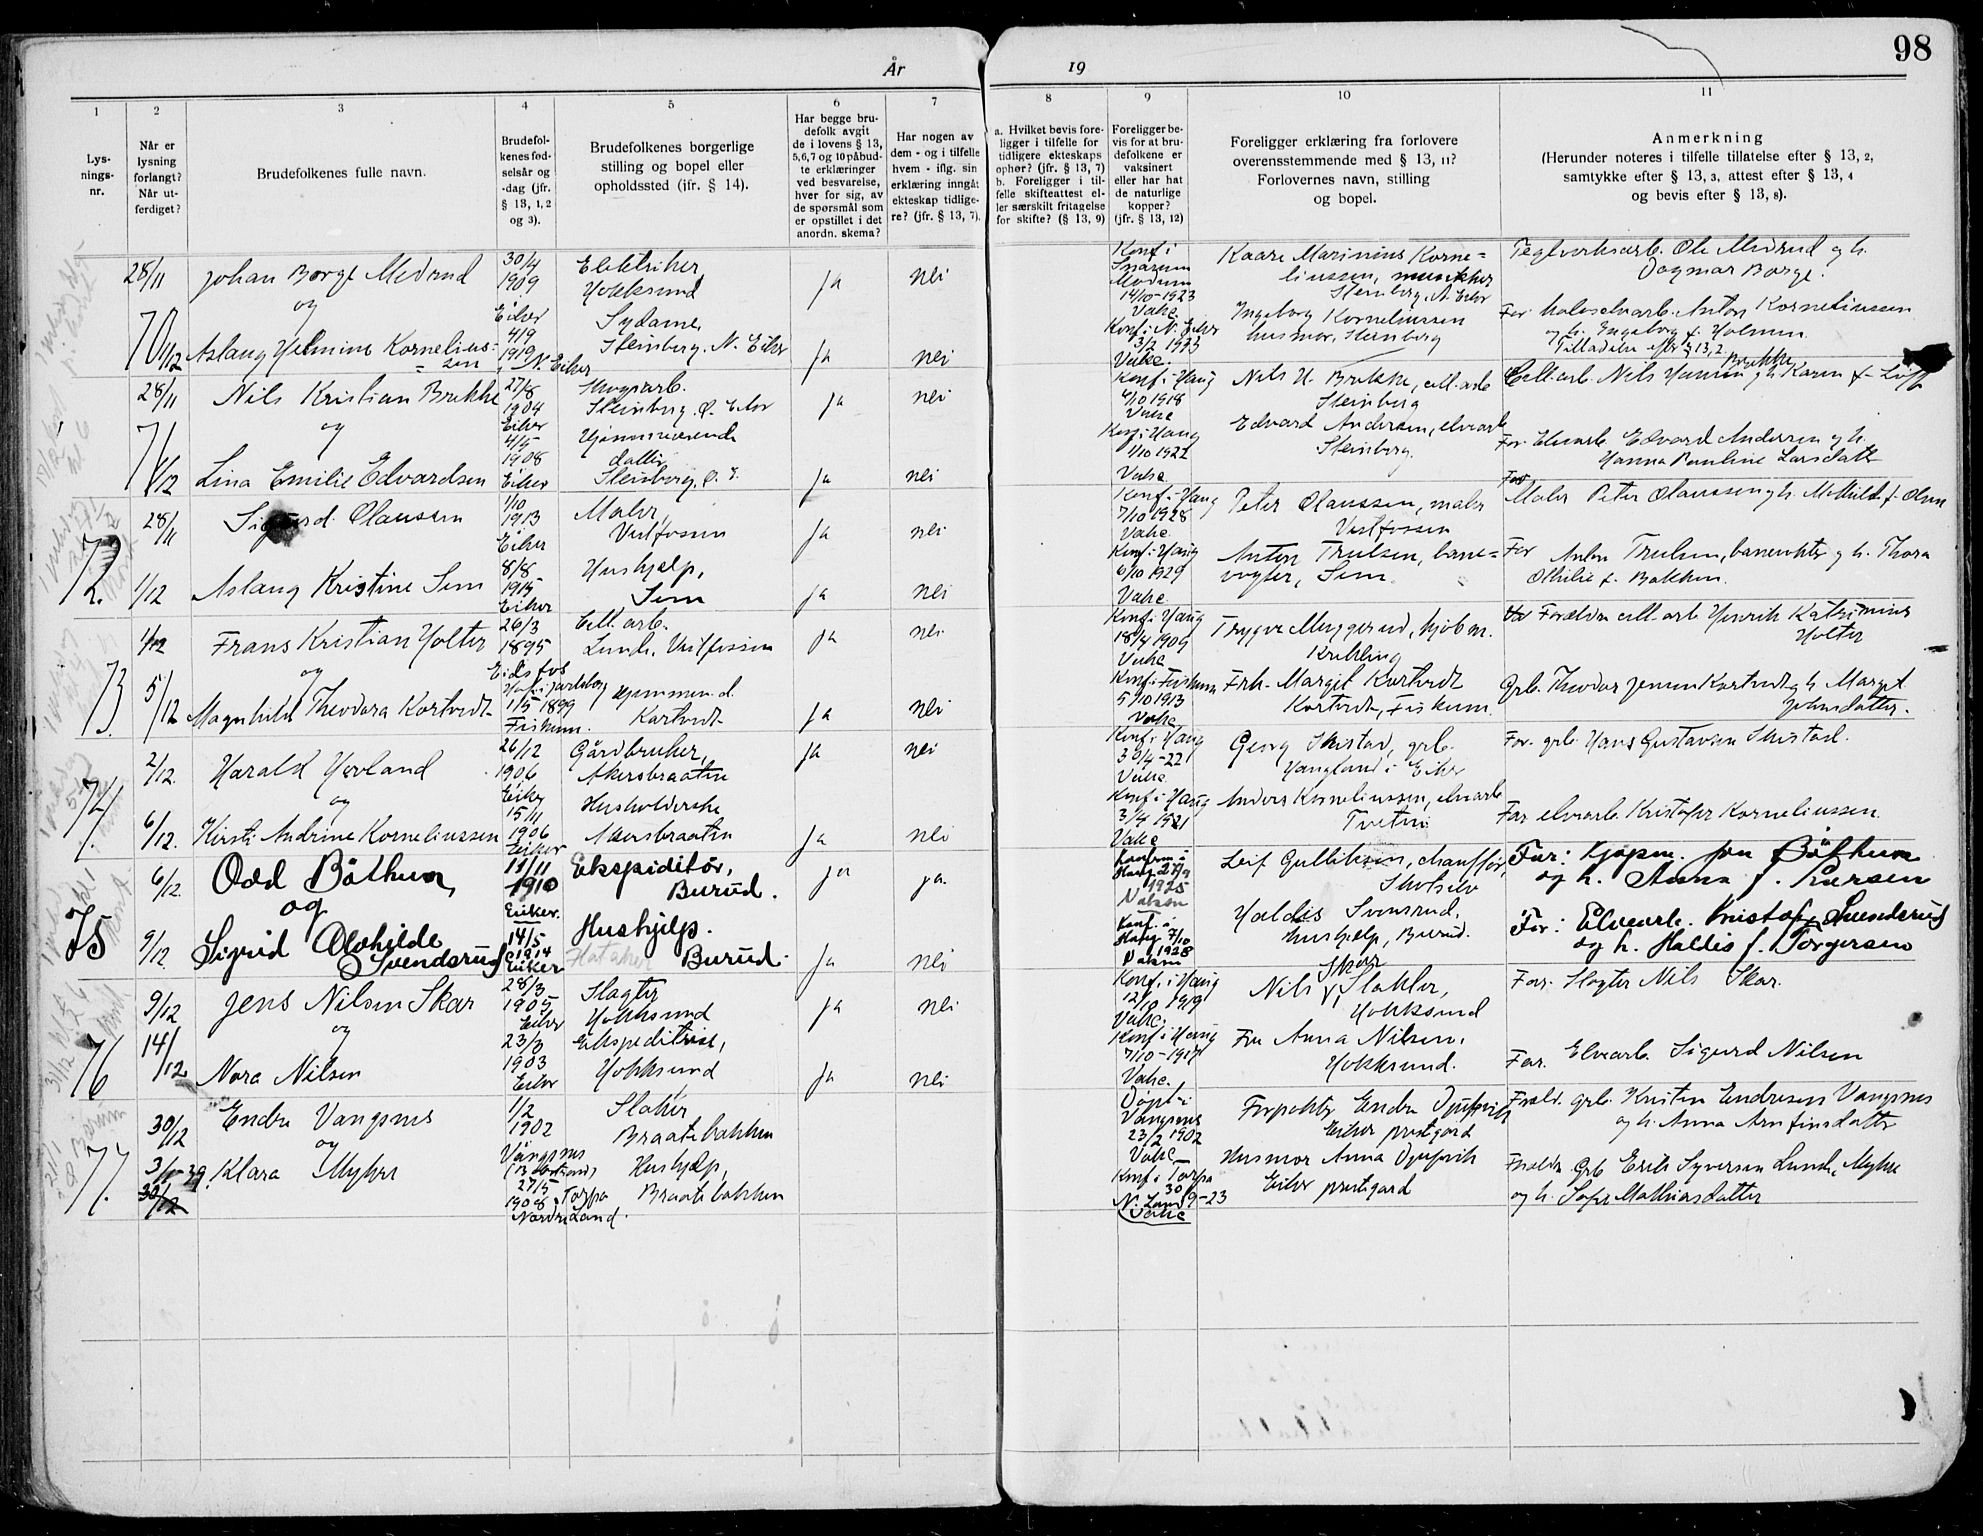 98
År
19
1
2
3
4
5
6
7
8
9
10
11
Lys-
nings-
nr.
Når er
lysning
forlangt?
Når ut-
ferdiget?
Brudefolkenes fulle navn.
Brudefol-
kenes fød-
selsår og
-dag (jfr.
§ 13, 1, 2
og 3).
Brudefolkenes borgerlige
stilling og bopel eller
opholdssted (jfr. § 14).
Har begge bru-
defolk avgit
de i lovens § 13,
5,6,7 og 10 påbud-
te erklæringer
ved besvarelse,
hver for sig, av
de spørsmål som
er opstillet i det
anordn. skema?
Har nogen av
dem - og i tilfelle
hvem - iflg. sin
erklæring inngått
ekteskap tidlige-
re? (jfr. § 13, 7).
a. Hvilket bevis fore-
ligger i tilfelle for
tidligere ekteskaps
ophør? (jfr. § 13, 7)
b. Foreligger i til-
felle skifteattest el-
ler særskilt fritagelse
for skifte? (§ 13, 9)
Foreligger be-
vis for at bru-
defolkene er
vaksinert
eller har hat
de naturlige
kopper?
(jfr. § 13, 12)
Foreligger erklæring fra forlovere
overensstemmende med § 13, 11?
Forlovernes navn, stilling
og bopel.
Anmerkning
(Herunder noteres i tilfelle tillatelse efter § 13, 2,
samtykke efter § 13, 3, attest efter § 13, 4
og bevis efter § 13, 8).
70
28/11
Johan Borge Medrud
og
30/4
1909
Eiker
Elektriker
Hokksund
ja
nei
Konf i
Snarum
Modum
14/10-1923
Vakc
Kaare Marinius Korne=
liussen,
Steinberg, N. Eiker
Teglverksarb. Ole Medrud og h.
Dagmar Borge.
1/12
Aslaug Helmine Kornelius=
= sen
4/9
1919
N. Eiker
Sydame,
Steinberg, N. Eiker
ja
nei
Konf i N. Eiker
3/2 1933
Vakc.
Ingeborg Korneliussen
husmor, Steinberg
Far Anton Korneliussen
og h. Ingeborg f. Holmen.
Tilladelse efter § 13,2
71
28/11
Nils Kristian Brekke
og
27/8
1904
Eiker
Skogsarb.
Steinberg, Ø. Eiker
ja
nei
Konf i Haug
6/10 1918
Vakc
Nils H. Brekke, cell.arb
Steinberg
Cell.arb. Nils Hansen Brekke og h. Karen f.
1/12
Lina Emilie Edvardsen
4/5
1908
Eiker
Hjemmeværende
datter
Steinberg, Ø. E.
ja
nei
Konf i Haug
1/10 1922
Vakc
Edvard Andersen, elvearb
Steinberg.
Far Elvearb. Edvard Andersen og h.
Hanna Pauline Larsdatter
72.
28/11
Sigurd Olaussen
1/10
1913
Eiker
Maler,
Vestfossen
ja
nei
Konf i Haug
7/10 1928
Vakc
Peter Olaussen, maler
Vestfossen
Far
Maler Peter Olaussen og h. Mathilde f. Olsen
1/12
Aslaug Kristine Sem
8/8
1915
Eiker
Hushjelp,
Sem
ja
nei
Konf i Haug
6/10 1929
Vakc
Anton Trulsen, bane=
vogter, Sem
Far Anton Trulsen, banevokter og h. Thora
Othilie f. Bakken.
73.
1/12
Frans Kristian Holter
og
26/3
1895
Eidsfos
Hof i Jarlsberg
Cell. arb.
Lunde, Vestfossen
ja
nei
Konf i Haug
18/4 1909
Vakc
Trygve Muggerud, kjøbm.
Krekling
Foreldre cell-arb Henrik Kathimius
Holter
5/12
Magnhild Theodora Kortvedt
1/5 1899
Fiskum.
Hjemmev. d.
Kortvedt
ja
nei
Konf i Fiskum
5/10 1913
Vakc
Frk. Margit Kortvedt
Kortvedt, Fiskum.
Grb. Theodor Jensen Kortvedt og h. Marget
Johnsdatter.
74.
2/12.
Harald Hovland
og
26/12
1906
Eiker
Gårdbruker,
Akersbraaten
ja
nei
Konf i Haug
30/4-221
Vakc
Georg Skistad, grb.
Haugland i Eiker
Far. grb. Hans Gustavsen Skistad.
6/12.
Kirsti Andrine Korneliussen
15/11
1906
Eiker
Husholderske
Akersbraaten
ja
nei
Konf i Haug
3/4 1921
Vakc
Anders Korneliussen, elvearb
Tveten
Far elvearb. Kristofer Korneliussen.
75
6/12.
Odd Båthen,
og
11/11
1910
Eiker.
Ekspeditør,
Burud.
ja
ja.
Konfirm i
Haug 27/9
1925
Vaksin
Leif Gulliksen, chauffør,
Skotselv
Far: Kjøpm. Jon Båthen
og h. Anna f. Iversen
9/12
Sigrid Alvhilde
Svendsrud
14/5
1914
Eiker
Hushjelp.
Burud.
ja
nei
Konf. i
Haug 7/10
1928
Vaksin
Haldis Svensrud,
hushjelp, Burud.
Far: Elvearb. Kristofer Svendsrud
og h. Hallis f. Torgersen
76
9/12
Jens Nilsen Skar
og
28/3
1905
Eiker
Slagter
Hokksund
ja
nei
Konf. i Haug
12/10 1919
Vakc.
Nils Skar, Slakter,
Hokksund
Far. Slagter Nils Skar.
14/12
Nora Nilsen
23/3
1903
Eiker
Ekspeditrise,
Hokksund
ja
nei
Konf i Haug
7/10-1917
Vakc.
Fru Anna Nilsen,
Hokksund.
Far. Elvearb. Sigurd Nilsen
77.
30/12
Endre Vangsnes
og
1/2
1902
Vangsnes
Slakter
Braatebakken
Døpt i
Vangsnes
23/2 1902
Vakc
Forpakter Endre Djupvik
Eiker prestgard
Foreldr. grb. Kristen Endresen Vangsnes
og h. Anna Arnfinsdatter
3/1-39.
30/12
Klara Myhre
27/5
1908 Torpa
Nordre Land.
Hushjelp,
Braatebakken
Konf i Torpa
N. Land 30/9-23
Vakc
Husmor Anna Djupvik
Eiker prestegard
Foreldr Grb Erik Syversen Lunde Myhre
og h. Sofie Mathiasdatter